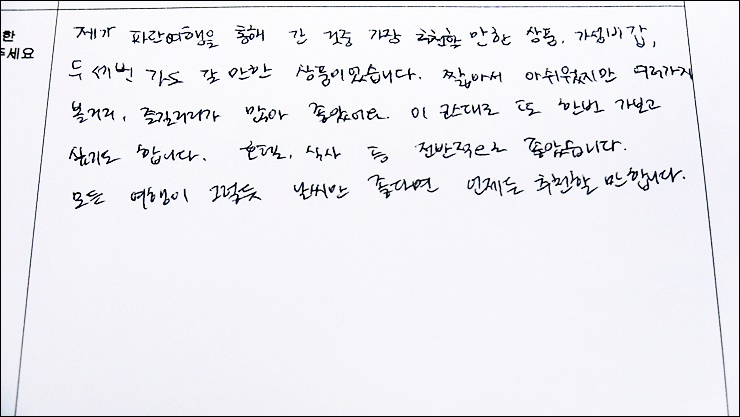 한
주세요
제가 파란여행을 통해 간 것중 가장 추천할 만한 상품. 가성비 갑,
두 세번 가도 될 만한 상품이었습니다. 짧아서 아쉬웠지만 여러가지
볼거리, 즐길거리가 많아 좋았어요. 이 코스대로 또 한번 가보고
싶기도 합니다. 호텔, 식사 등 전반적으로 좋았습니다.
모든 여행이 그렇듯 날씨만 좋다면 언제든 추천할 만합니다.